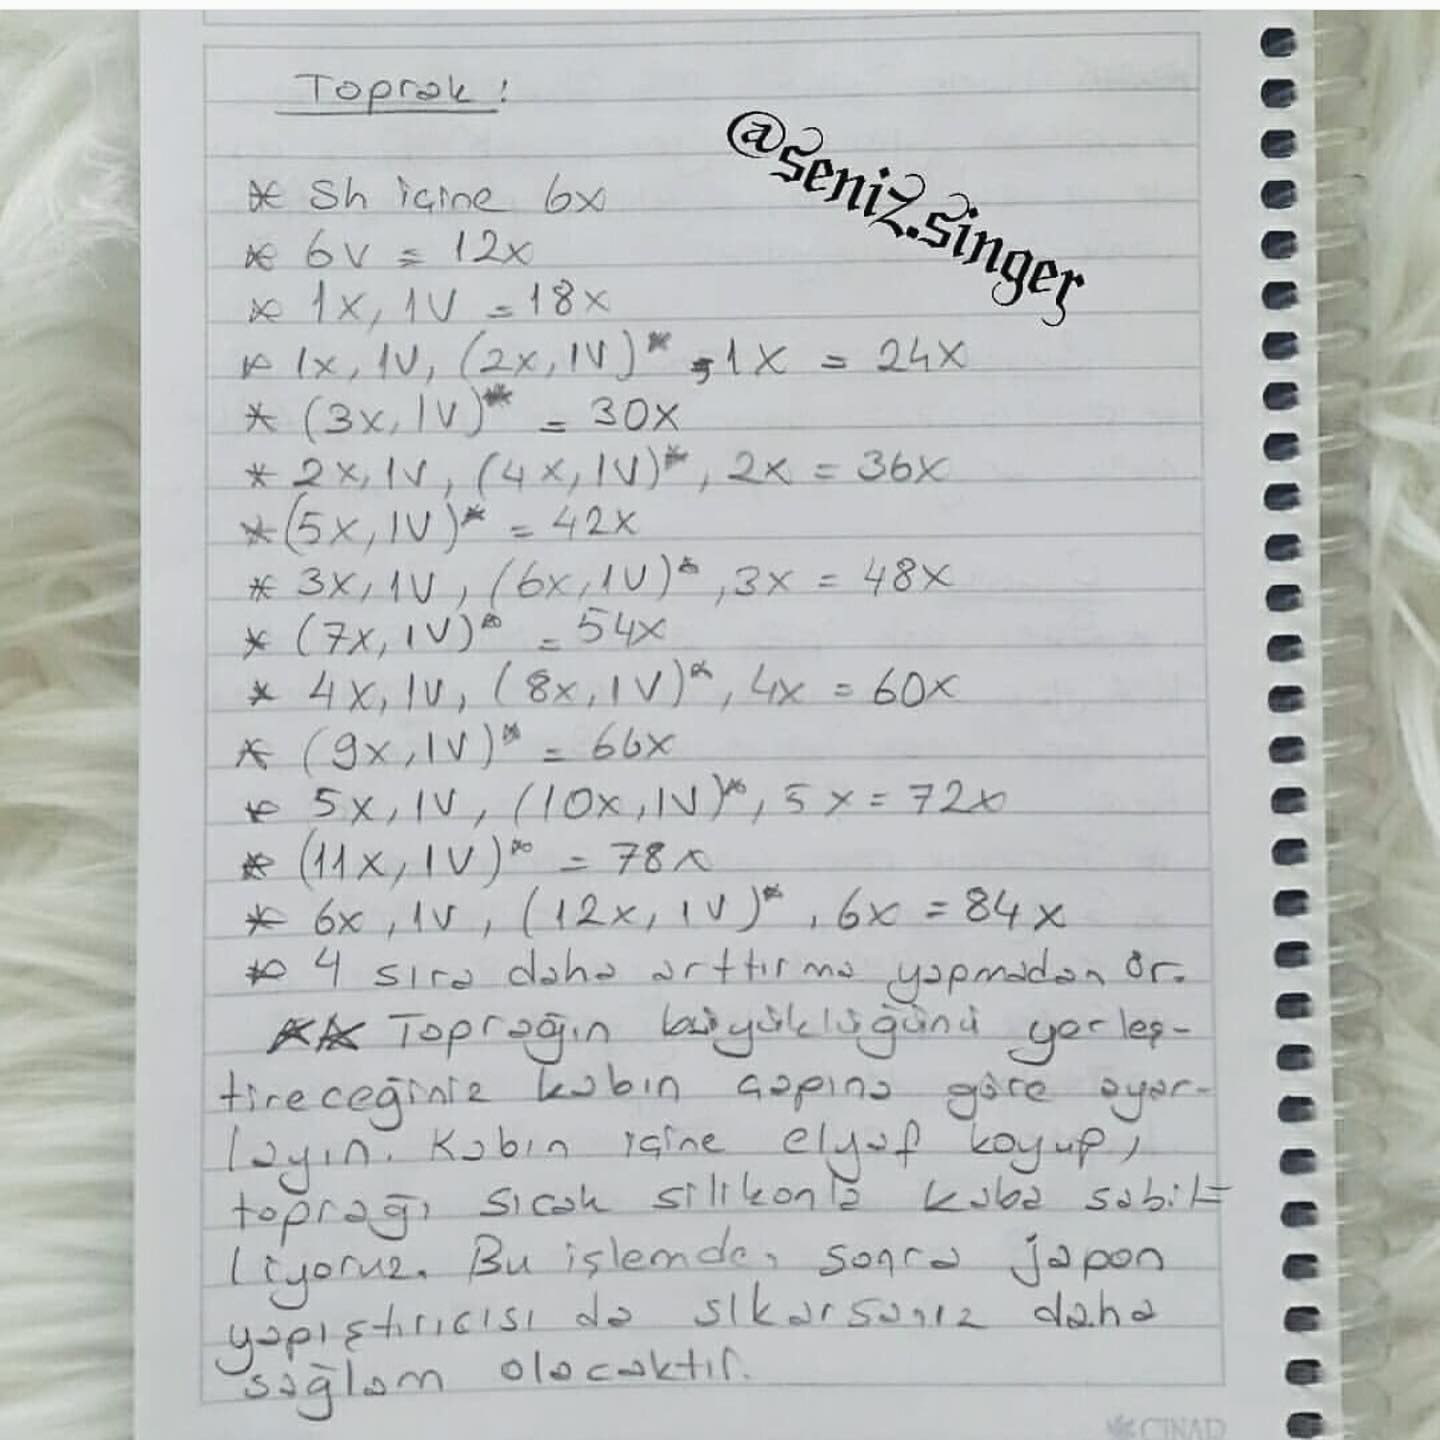 Toprak:
@seniz.singer
* Sh içine 6x
* 6v = 12x
* 1x, 1V = 18x
* 1x, 1V, (2x, 1V)*, 1X = 24X
* (3x, 1V)* = 30X
* 2x, 1V, (4x, 1V)*, 2x = 36x
* (5x, 1V)* = 42x
* 3x, 1V, (6x, 1V)*, 3x = 48x
* (7x, 1V)* = 54x
* 4x, 1V, (8x, 1V)*, 4x = 60x
* (9x, 1V)* = 66x
* 5x, 1V, (10x, 1V)*, 5x = 72x
* (11x, 1V)* = 78x
* 6x, 1V, (12x, 1V)*, 6x = 84x
* 4 sıra daha arttırma yapmadan ör.
** Toprağın büyüklüğünü yerleş-
tireceğiniz kabın çapına göre ayar-
layın. Kabın içine elyaf koyup,
toprağı sıcak silikonla kaba sabit-
liyoruz. Bu işlemden sonra japon
yapıştırıcısı da sıkarsanız daha
sağlam olacaktır.
ÇINAR